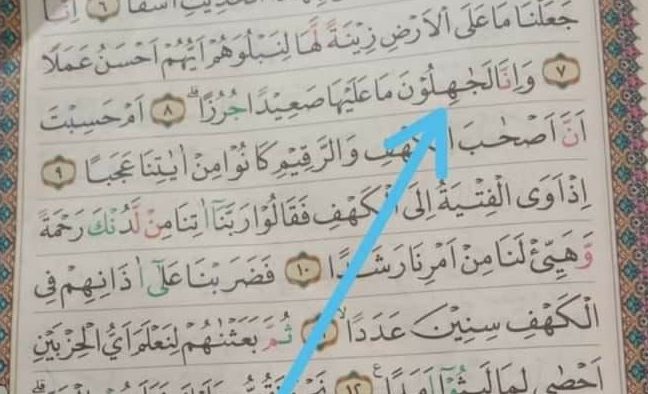 الْحَدِيْثِ اَسَفًا ٦ اِنَّا
جَعَلْنَا مَا عَلَى الْاَرْضِ زِيْنَةً لَّهَا لِنَبْلُوَهُمْ اَيُّهُمْ اَحْسَنُ عَمَلًا
٧ وَاِنَّا لَجٰهِلُوْنَ مَا عَلَيْهَا صَعِيْدًا جُرُزًاۗ ٨ اَمْ حَسِبْتَ
اَنَّ اَصْحٰبَ الْكَهْفِ وَالرَّقِيْمِ كَانُوْا مِنْ اٰيٰتِنَا عَجَبًا ٩
اِذْ اَوَى الْفِتْيَةُ اِلَى الْكَهْفِ فَقَالُوْا رَبَّنَآ اٰتِنَا مِنْ لَّدُنْكَ رَحْمَةً
وَّهَيِّئْ لَنَا مِنْ اَمْرِنَا رَشَدًا ١٠ فَضَرَبْنَا عَلٰٓى اٰذَانِهِمْ فِى
الْكَهْفِ سِنِيْنَ عَدَدًاۙ ثُمَّ بَعَثْنٰهُمْ لِنَعْلَمَ اَيُّ الْحِزْبَيْنِ
اَحْصٰى لِمَا لَبِثُوْٓا اَمَدًا ࣖ ١٢